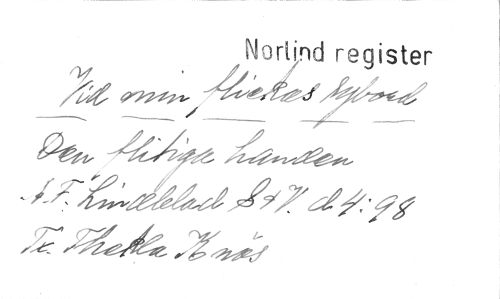 Norlind register
Vid min flickas sybord
Den flitiga handen
A. F. Lindblad S o V. d. 4: 98
Tx. Thekla Knös